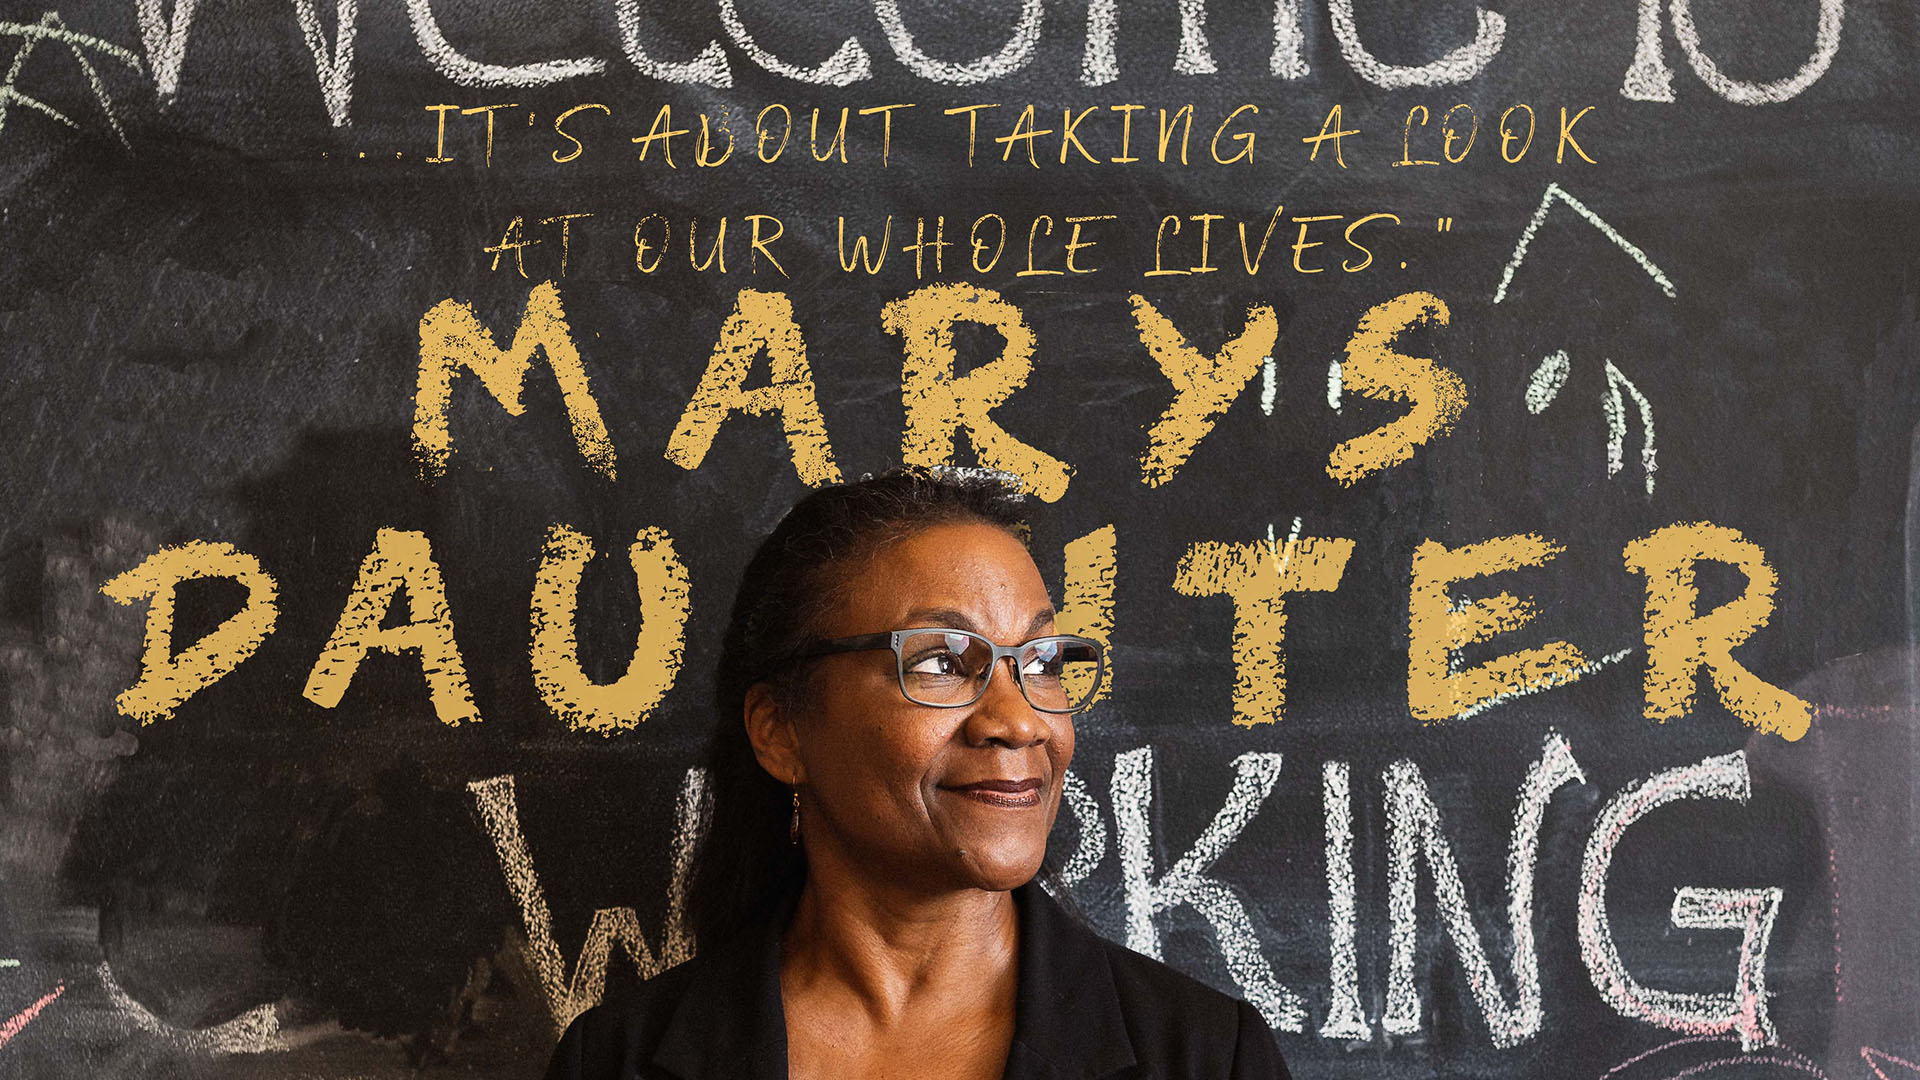 Welcome to
...IT'S ABOUT TAKING A LOOK
AT OUR WHOLE LIVES."
MARYS
DAUGHTER
WORKING